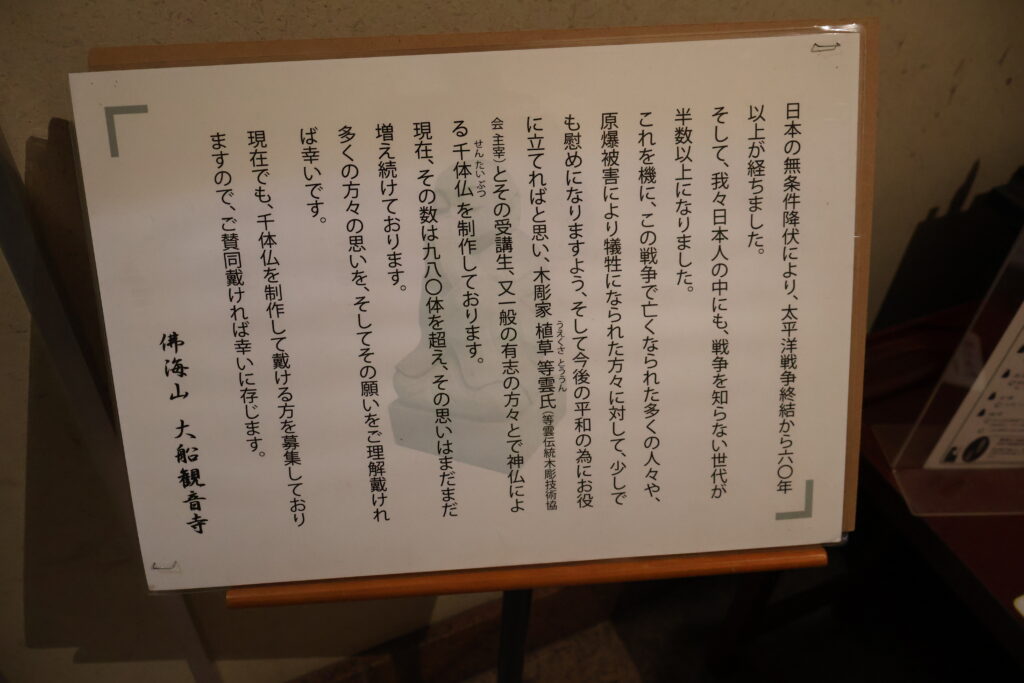 日本の無条件降伏により、太平洋戦争終結から六〇年
以上が経ちました。
そして、我々日本人の中にも、戦争を知らない世代が
半数以上になりました。
これを機に、この戦争で亡くなられた多くの人々や、
原爆被害により犠牲になられた方々に対して、少しで
も慰めになりますよう、そして今後の平和の為にお役
に立てればと思い、木彫家 植草 等雲氏（等雲伝統木彫技術協
うえくさ とううん
会 主宰）とその受講生、又一般の有志の方々とで神仏によ
る 千体仏 を制作しております。
せんたいぶつ
現在、その数は九八〇体を超え、その思いはまだまだ
増え続けております。
多くの方々の思いを、そしてその願いをご理解戴けれ
ば幸いです。
現在でも、千体仏を制作して戴ける方を募集しており
ますので、ご賛同戴ければ幸いに存じます。
佛海山 大船観音寺